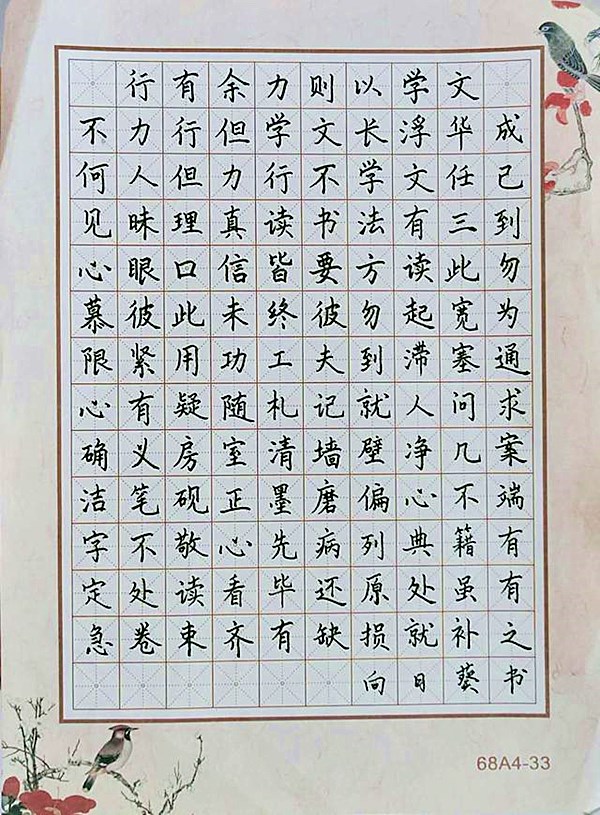 行有余力则以学文
不力行但学文长浮华成
何人但力行不学文任己
见昧理真读书法有三到
心眼口信皆要方读此勿
慕彼此未终彼勿起宽为
限紧用功工夫到滞塞通
心有疑随札记就人问求
确义房室清墙壁净几案
洁笔砚正墨磨偏心不端
字不敬心先病列典籍有
定处读看毕还原处虽有
急卷束齐有缺损就补之
向日葵书
68A4-33